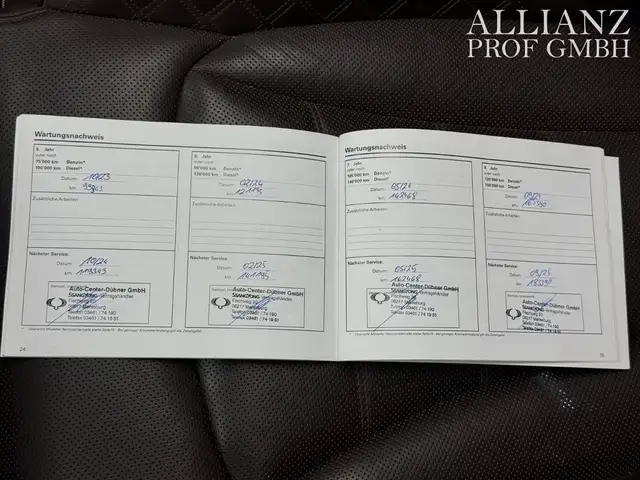 ALLIANZ
PROF GMBH
Wartungsnachweis
5. Jahr
oder nach
75'000 km Benzin*
100'000 km Diesel*
Datum: 10/23
km:
Zusätzliche Arbeiten:
Nächster Service:
Datum: 10/24
km: 119343
Auto-Center-Dübner GmbH
SSANGYONG Vertragshändler
06217 Merseburg
Telefon 03461 / 74 190
Telefax 03461 / 74 19 51
24
6. Jahr
oder nach
90'000 km Benzin*
120'000 km Diesel*
Datum: 02/24
km:
Zusätzliche Arbeiten:
Nächster Service:
Datum: 02/25
km: 141195
Auto-Center-Dübner GmbH
SSANGYONG Vertragshändler
06217 Merseburg
Telefon 03461 / 74 190
Telefax 03461 / 74 19 51
Wartungsnachweis
7. Jahr
oder nach
105'000 km Benzin*
140'000 km Diesel*
Datum: 05/24
km: 142468
Zusätzliche Arbeiten:
Nächster Service:
Datum: 05/25
km: 162468
Auto-Center-Dübner GmbH
SSANGYONG Vertragshändler
06217 Merseburg
Telefon 03461 / 74 190
Telefax 03461 / 74 19 51
8. Jahr
oder nach
120'000 km Benzin*
160'000 km Diesel*
Datum: 09/24
km:
Zusätzliche Arbeiten:
Nächster Service:
Datum: 09/25
km:
Auto-Center-Dübner GmbH
SSANGYONG Vertragshändler
06217 Merseburg
Telefon 03461 / 74 190
Telefax 03461 / 74 19 51